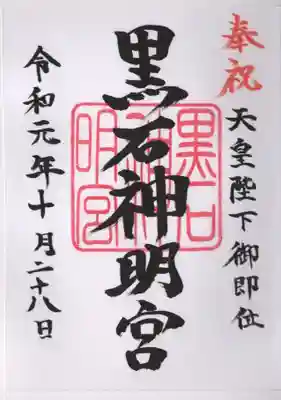 奉祝
天皇陛下御即位
黒石神明宮
黒石
神神
明宮
令和元年十月二十八日